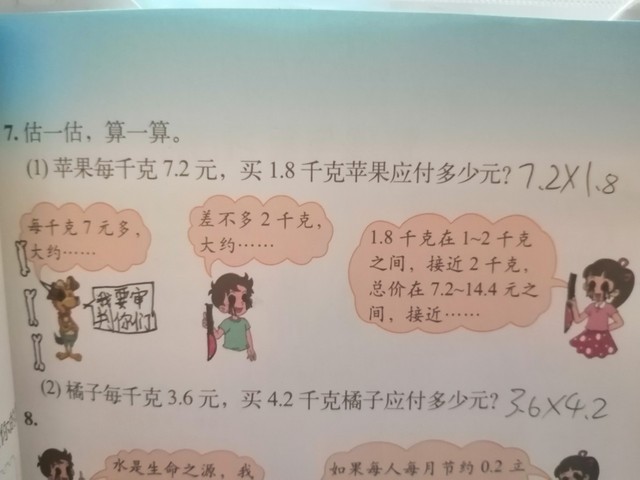 7. 估一估，算一算。
(1) 苹果每千克 7.2 元，买 1.8 千克苹果应付多少元？7.2×1.8
每千克 7 元多，
大约……
差不多 2 千克，
大约……
1.8 千克在 1~2 千克
之间，接近 2 千克，
总价在 7.2~14.4 元之
间，接近……
我要审
判你们
(2) 橘子每千克 3.6 元，买 4.2 千克橘子应付多少元？3.6×4.2
8.
水是生命之源，我
如果每人每月节约 0.2 立